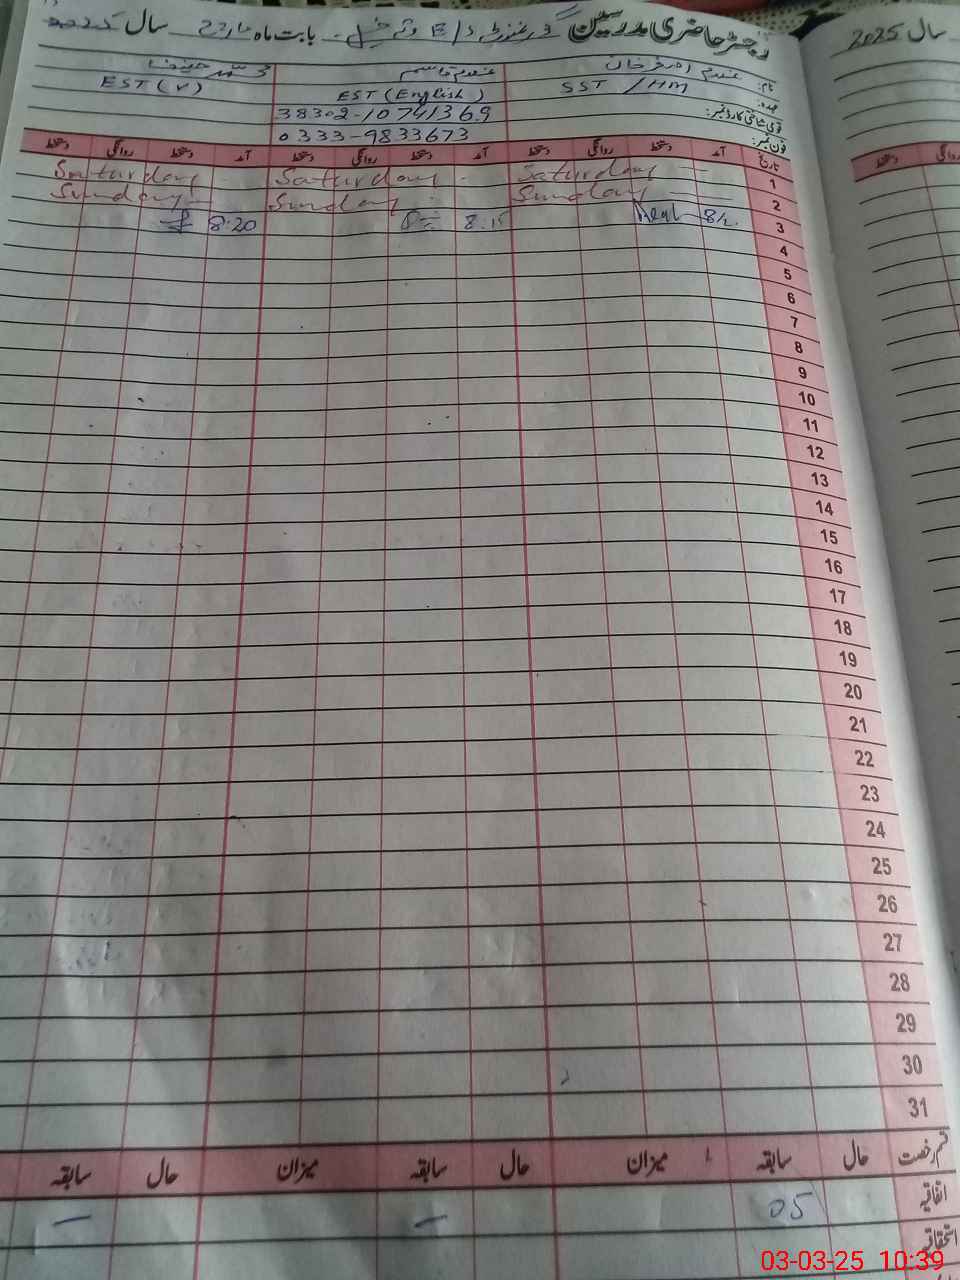 رجسٹر حاضری مدرسین بابت ماہ مارچ سال
سال 2025
نام: غلام محمد قاسم
عہدہ: SST / HM EST (English) EST (V)
قومی شناختی کارڈ نمبر: 38302-10741369
فون نمبر: 0333-9833673
تاریخ آمد دستخط روانگی دستخط آمد دستخط روانگی دستخط آمد دستخط روانگی دستخط
1 Saturday Saturday Saturday
2 Sunday Sunday Sunday
3 8:15 8:20
4
5
6
7
8
9
10
11
12
13
14
15
16
17
18
19
20
21
22
23
24
25
26
27
28
29
30
31
قسم رخصت حال سابقہ میزان حال سابقہ میزان حال سابقہ
اتفاقیہ 05 — —
استحقاقیہ
03-03-25 10:39